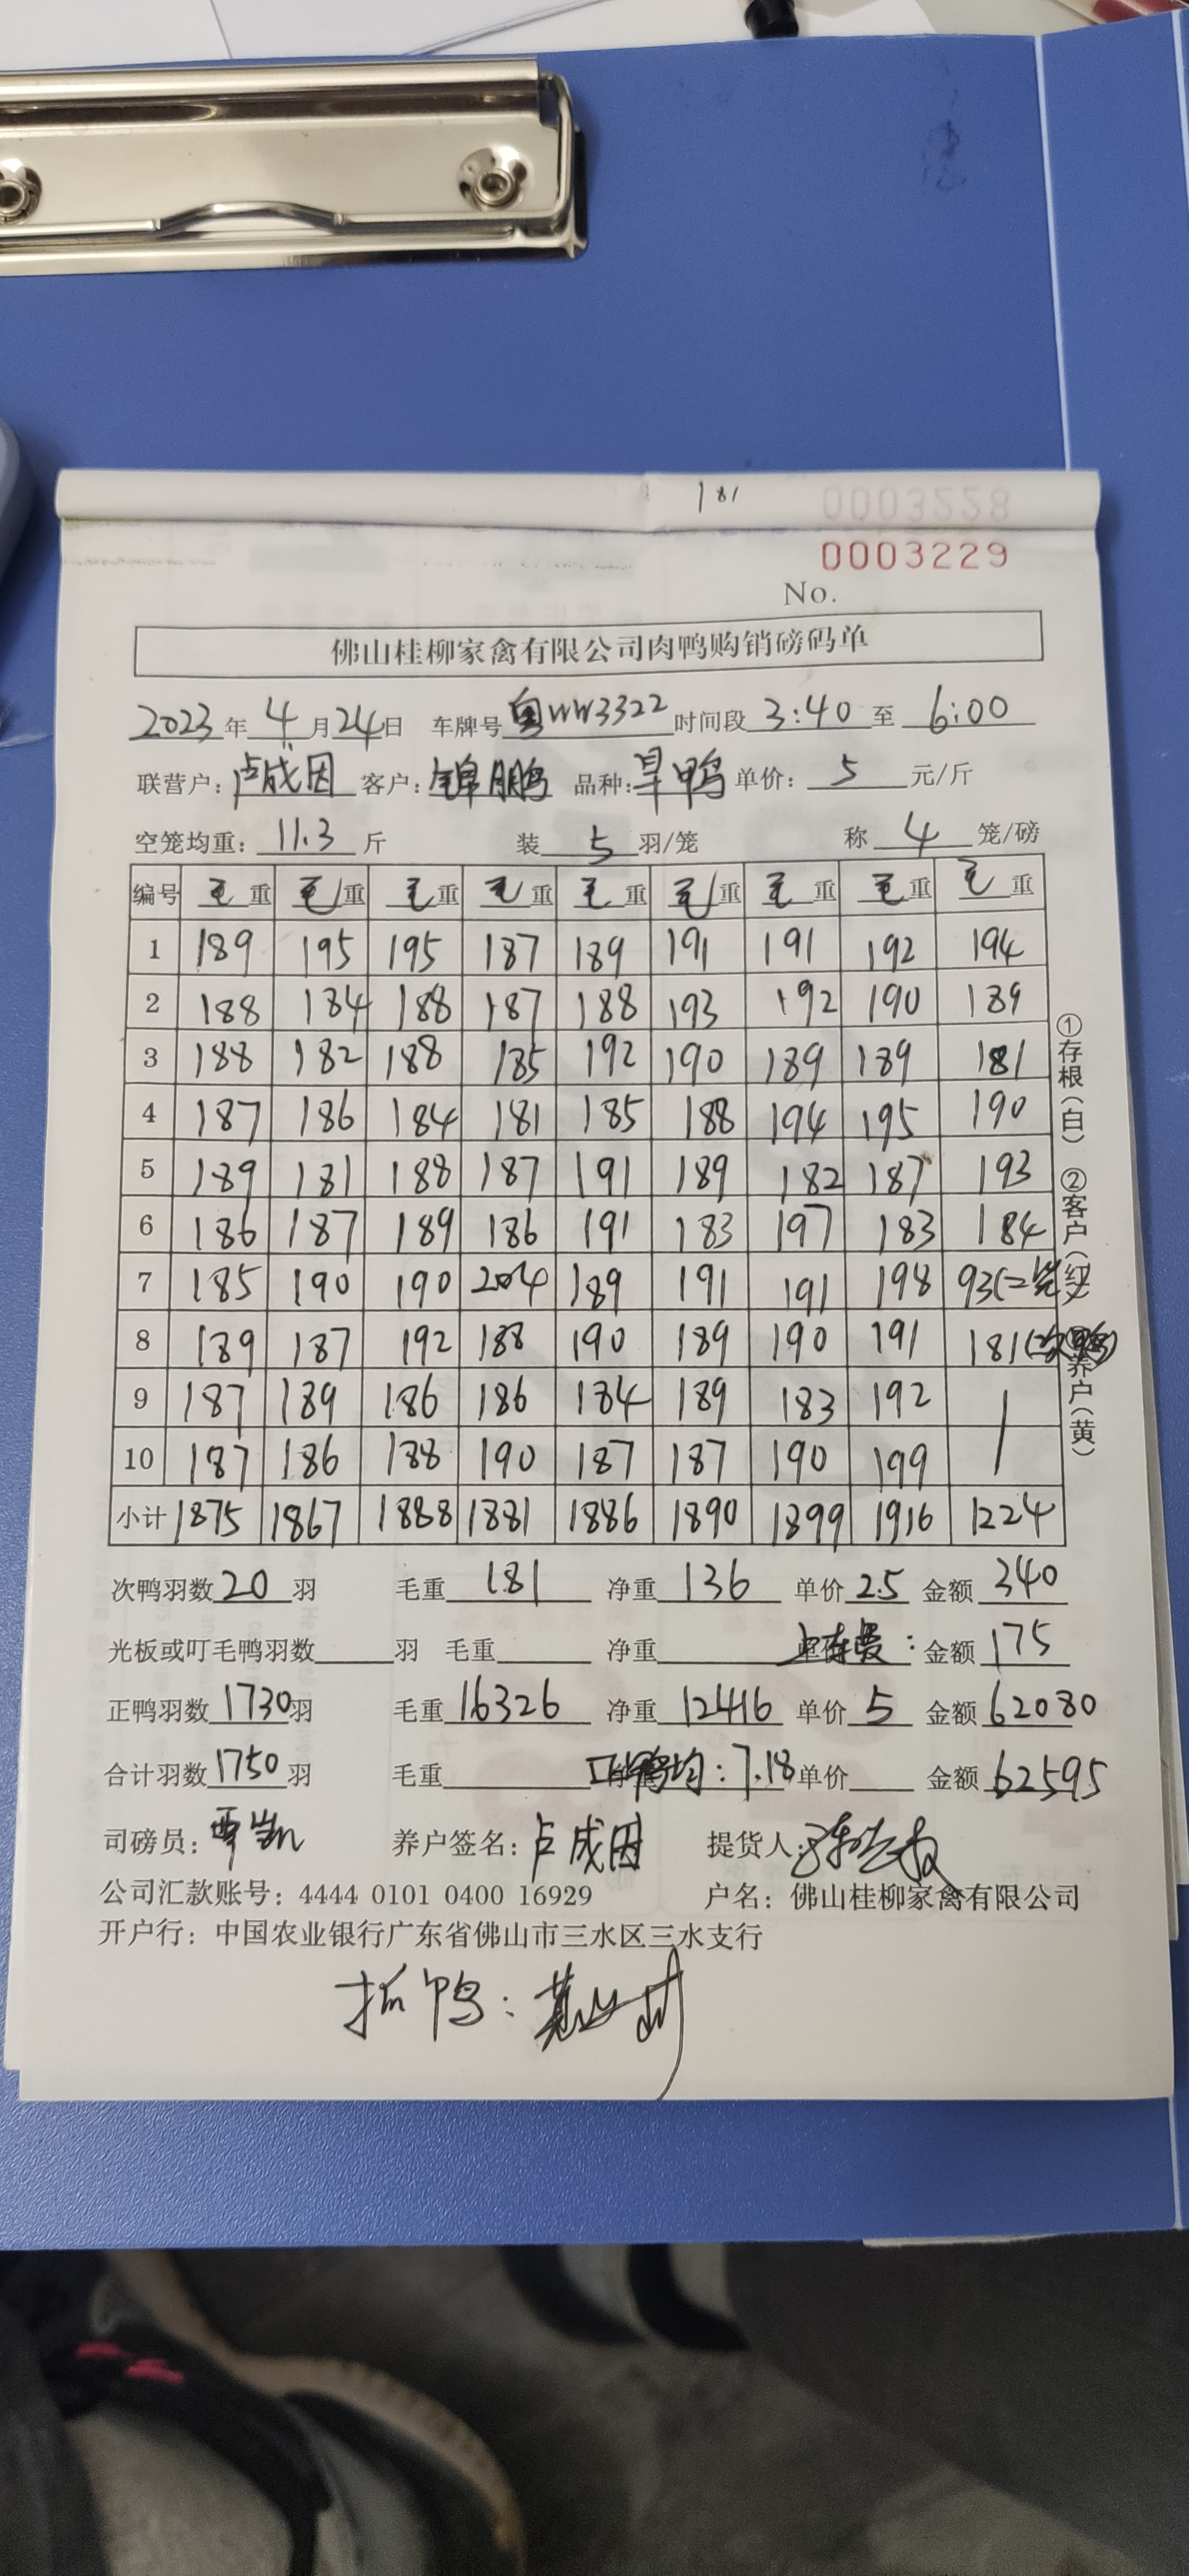 181
0003228
0003229
No.
佛山桂柳家禽有限公司肉鸭购销磅码单
2023年 4月24日 车牌号 粤WW3322 时间段 3:40 至 6:00
联营户: 卢成因 客户: 锦鹏 品种: 旱鸭 单价: 5 元/斤
空笼均重: 11.3 斤 装 5 羽/笼 称 4 笼/磅
编号 毛重 毛重 毛重 毛重 毛重 毛重 毛重 毛重 毛重
1 189 195 195 187 189 191 191 192 194
2 188 184 188 187 188 193 192 190 189
3 188 182 188 185 192 190 189 189 181
4 187 186 184 181 185 188 194 195 190
5 189 181 188 187 191 189 182 187 193
6 186 187 189 186 191 183 197 183 184
7 185 190 190 204 189 191 191 198 93(二笼)
8 189 187 192 188 190 189 190 191 181(次鸭)
9 187 189 186 186 184 189 183 192
10 187 186 188 190 187 187 190 199
小计 1875 1867 1888 1881 1886 1890 1899 1916 1224
①存根(白) ②客户(红) 养户(黄)
次鸭羽数 20 羽 毛重 181 净重 136 单价 2.5 金额 340
光板或叮毛鸭羽数 羽 毛重 净重 : 金额 175
正鸭羽数 1730羽 毛重 16326 净重 12416 单价 5 金额 62080
合计羽数 1750羽 毛重 鸭均: 7.18 单价 金额 62595
司磅员: 养户签名: 卢成因 提货人:
公司汇款账号: 4444 0101 0400 16929 户名: 佛山桂柳家禽有限公司
开户行: 中国农业银行广东省佛山市三水区三水支行
抓鸭: